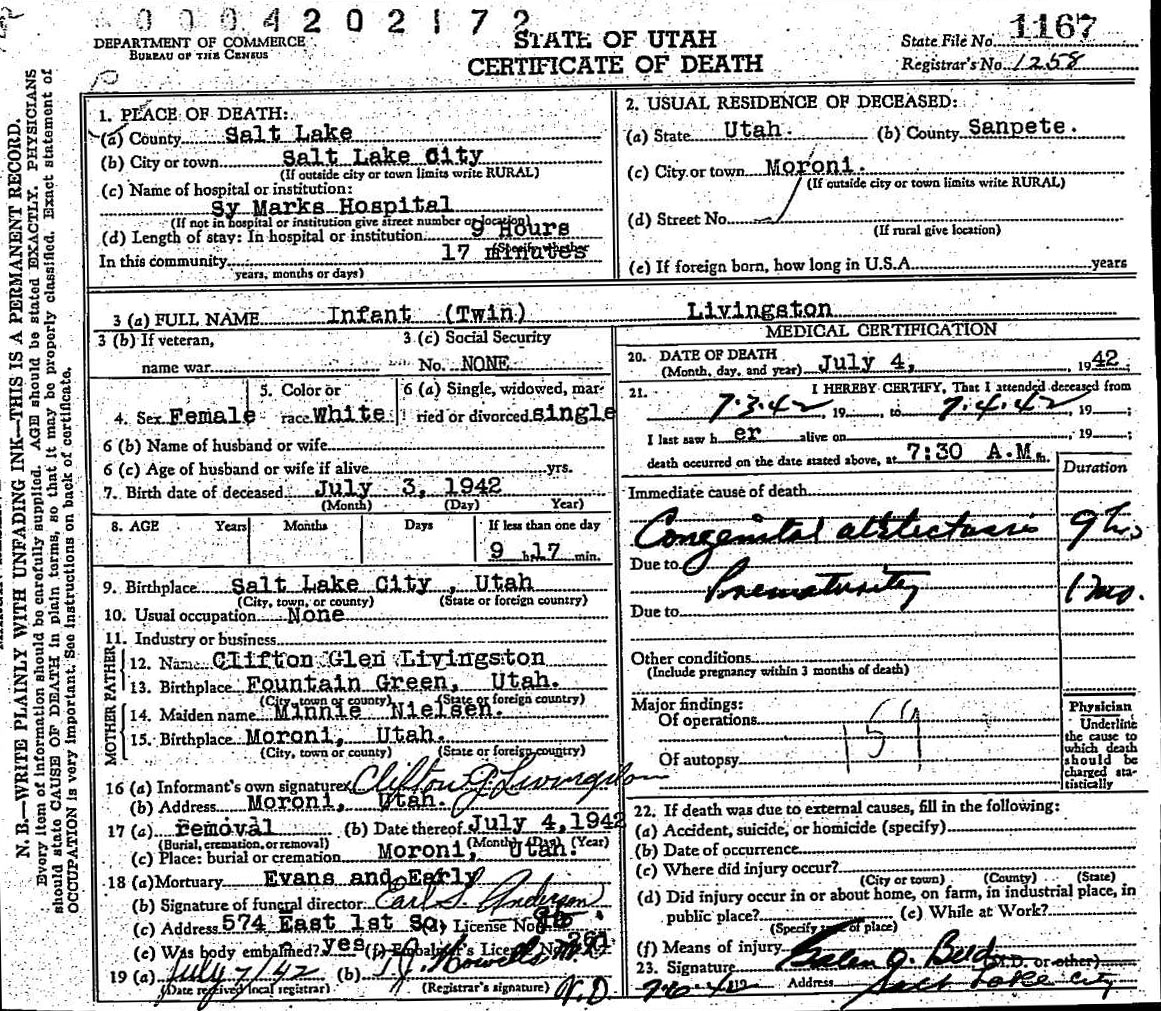 0004202172
DEPARTMENT OF COMMERCE
BUREAU OF THE CENSUS
STATE OF UTAH
CERTIFICATE OF DEATH
State File No. 1167
Registrar's No. 1258
N. B.—WRITE PLAINLY WITH UNFADING INK—THIS IS A PERMANENT RECORD.
Every item of information should be carefully supplied. AGE should be stated EXACTLY. PHYSICIANS
should state CAUSE OF DEATH in plain terms, so that it may be properly classified. Exact statement of
OCCUPATION is very important. See instructions on back of certificate.
1. PLACE OF DEATH:
(a) County Salt Lake
(b) City or town Salt Lake City
(If outside city or town limits write RURAL)
(c) Name of hospital or institution:
Sy Marks Hospital
(If not in hospital or institution give street number or location)
(d) Length of stay: In hospital or institution 9 Hours
(Specify whether
In this community 17 minutes
years, months or days)
2. USUAL RESIDENCE OF DECEASED:
(a) State Utah. (b) County Sanpete.
(c) City or town Moroni.
(If outside city or town limits write RURAL)
(d) Street No.
(If rural give location)
(e) If foreign born, how long in U.S.A. years
3 (a) FULL NAME Infant (Twin) Livingston
3 (b) If veteran,
name war
3 (c) Social Security
No. NONE
4. Sex Female
5. Color or
race White
6 (a) Single, widowed, mar-
ried or divorced single
6 (b) Name of husband or wife
6 (c) Age of husband or wife if alive yrs.
7. Birth date of deceased July 3, 1942
(Month) (Day) Year)
8. AGE Years Months Days If less than one day
9 h. 17 min.
9. Birthplace Salt Lake City, Utah
(City, town, or county) (State or foreign country)
10. Usual occupation None
11. Industry or business
FATHER
12. Name Clifton Glen Livingston
13. Birthplace Fountain Green, Utah.
(City, town or county) (State or foreign country)
MOTHER
14. Maiden name Minnie Nielsen.
15. Birthplace Moroni, Utah.
(City, town or county) (State or foreign country)
16 (a) Informant's own signature Clifton G. Livingston
(b) Address Moroni, Utah.
17 (a) removal (b) Date thereof July 4, 1942
(Burial, cremation, or removal) (Month) (Day) (Year)
(c) Place: burial or cremation Moroni, Utah.
18 (a) Mortuary Evans and Early
(b) Signature of funeral director Earl S. Anderson
(c) Address 574 East 1st So, License No.
(e) Was body embalmed? yes (f) Embalmer's License No.
19 (a) July 7/42 (b)
(Date received local registrar) (Registrar's signature)
MEDICAL CERTIFICATION
20. DATE OF DEATH
(Month, day, and year) July 4, 1942
21. I HEREBY CERTIFY, That I attended deceased from
7.3.42, 19 , to 7.4.42, 19 ;
I last saw her alive on , 19 ;
death occurred on the date stated above, at 7:30 A.M.
Duration
Immediate cause of death
Congenital atelectasis 9 hrs
Due to
Prematurity 1 mo.
Due to
Other conditions
(Include pregnancy within 3 months of death)
Major findings:
Of operations
159
Of autopsy
Physician
Underline
the cause to
which death
should be
charged sta-
tistically
22. If death was due to external causes, fill in the following:
(a) Accident, suicide, or homicide (specify)
(b) Date of occurrence
(c) Where did injury occur?
(City or town) (County) (State)
(d) Did injury occur in or about home, on farm, in industrial place, in
public place? (e) While at Work?
(Specify type of place)
(f) Means of injury
23. Signature (M.D. or other)
Address Salt Lake City